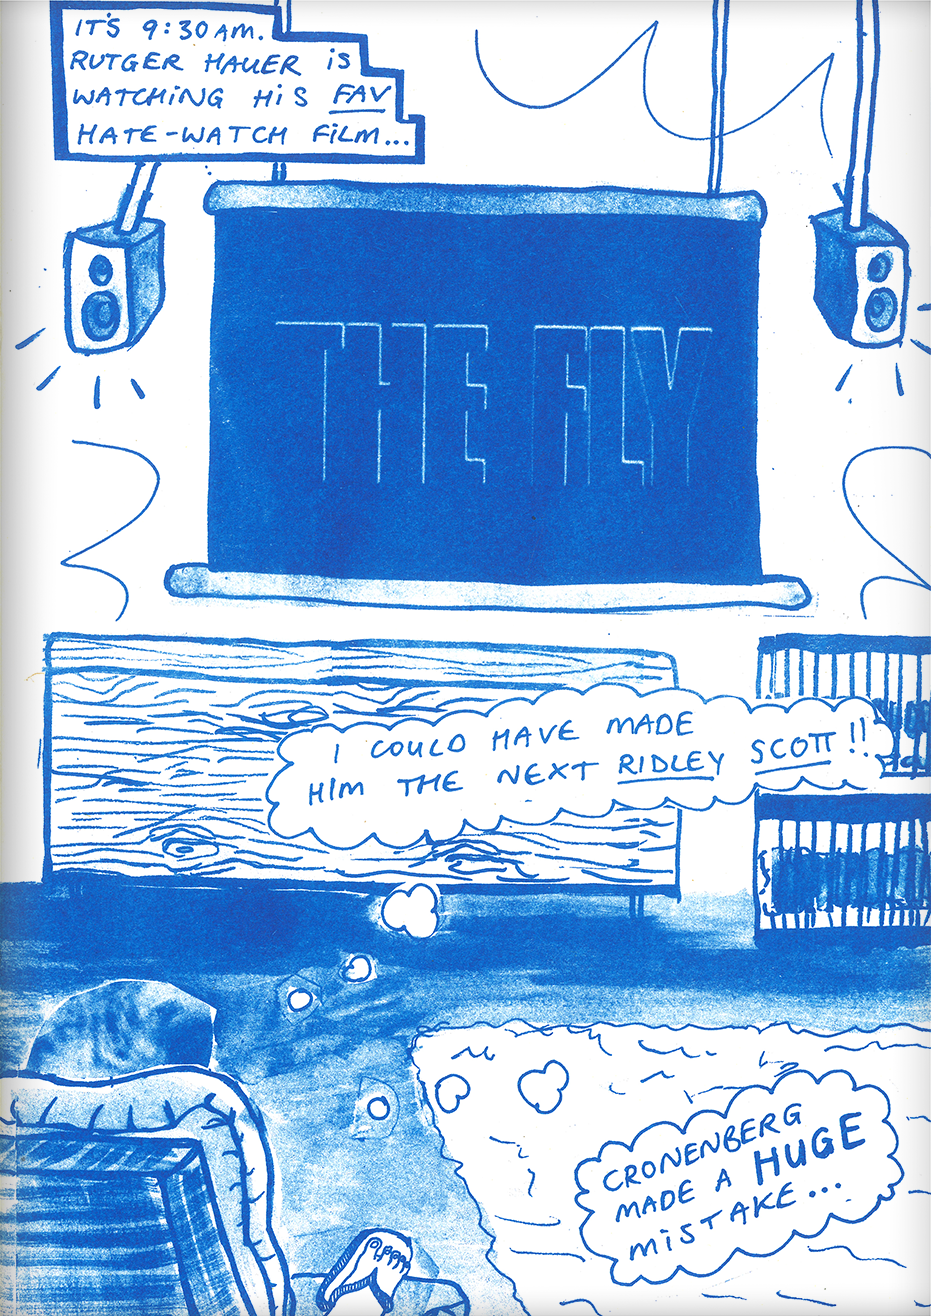 IT'S 9:30AM.
RUTGER HAUER iS
WATCHING HiS FAV
HATE-WATCH FiLM...
THE FLY
I COULD HAVE MADE
HIM THE NEXT RIDLEY SCOTT!!
CRONENBERG
MADE A HUGE
MiSTAKE...